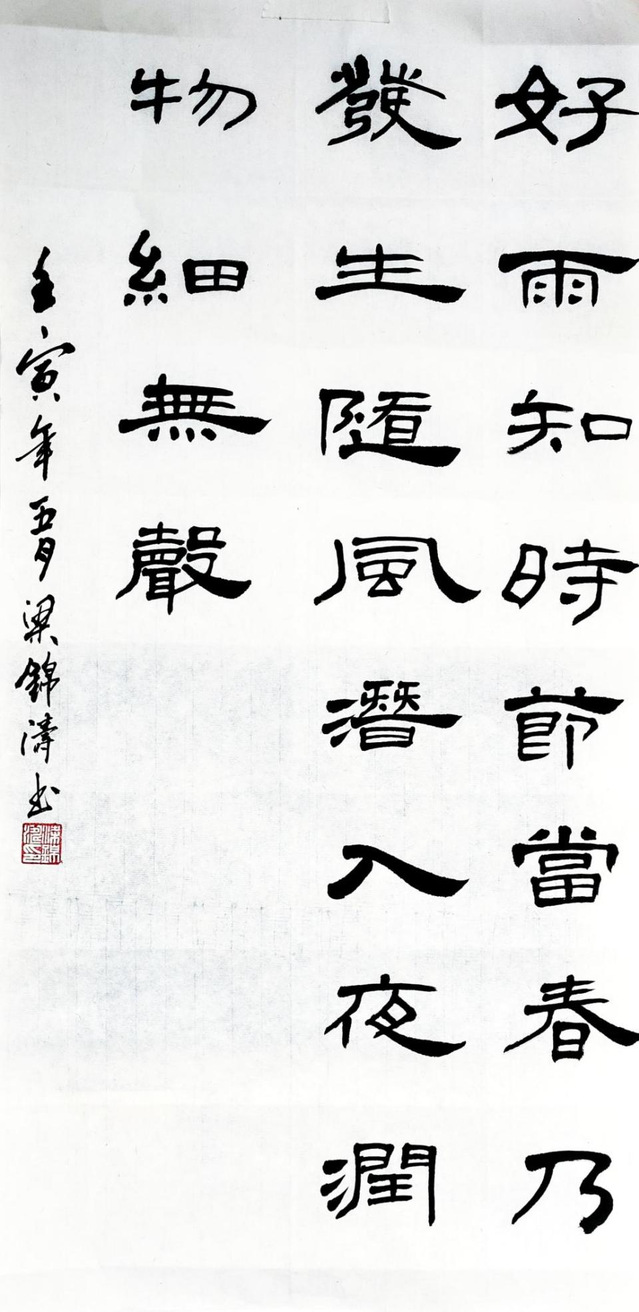 好雨知時節當春乃
發生隨風潛入夜潤
物細無聲
壬寅年五月梁錦濤书